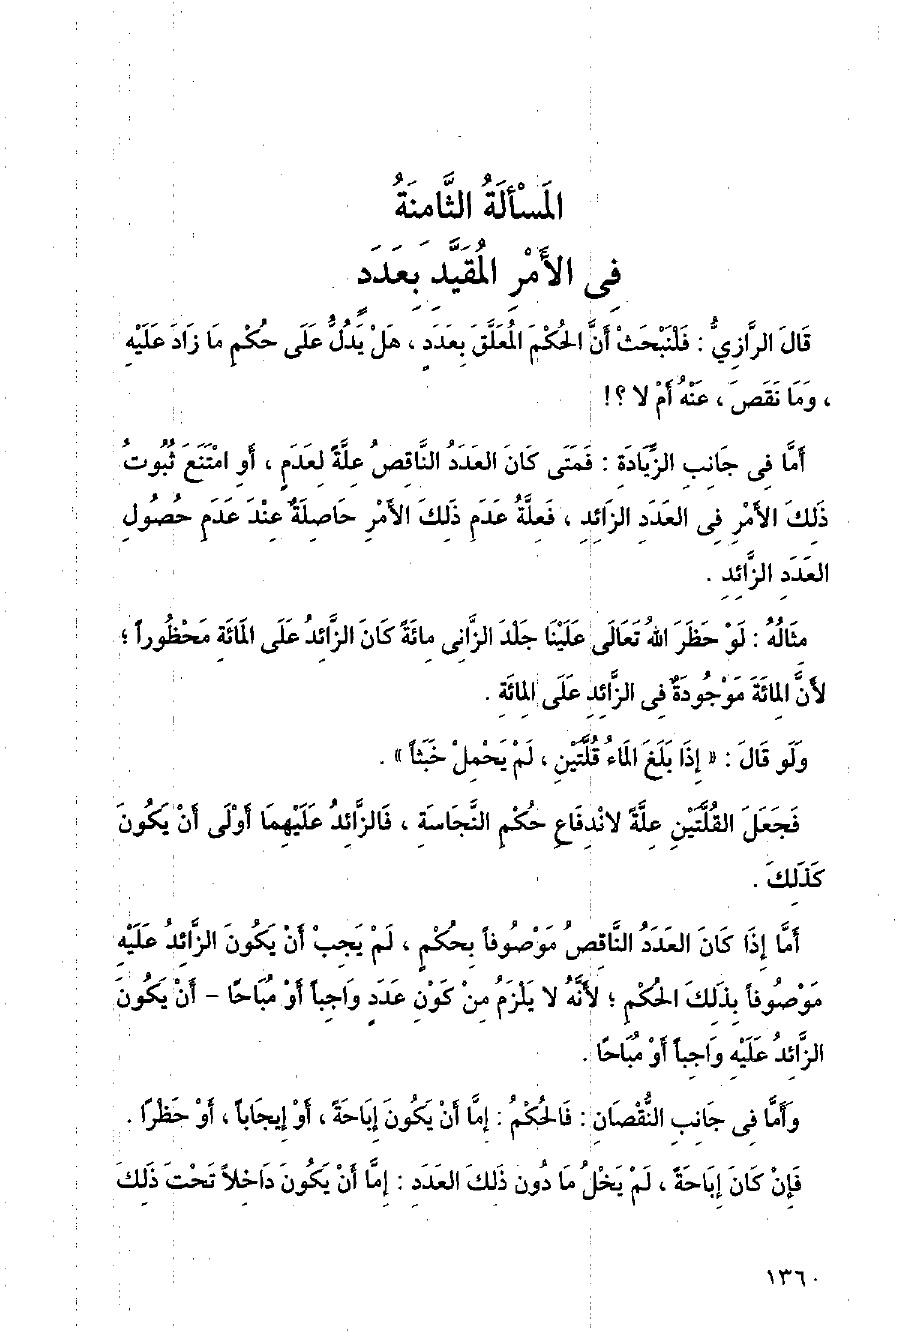 المَسْأَلَةُ الثَّامِنَةُ
فِى الأَمْرِ المُقَيَّدِ بِعَدَدٍ
قَالَ الرَّازِيُّ : فَلْنَبْحَثْ أَنَّ الحُكْمَ المُعَلَّقَ بِعَدَدٍ ، هَلْ يَدُلُّ عَلَى حُكْمِ مَا زَادَ عَلَيْهِ
، وَمَا نَقَصَ ، عَنْهُ أَمْ لا ؟!
أَمَّا فِى جَانِبِ الزِّيَادَةِ : فَمَتَى كَانَ العَدَدُ النَّاقِصُ عِلَّةً لِعَدَمِ ، أَوِ امْتَنَعَ ثُبُوتُ
ذَلِكَ الأَمْرِ فِى العَدَدِ الزَّائِدِ ، فَعِلَّةُ عَدَمِ ذَلِكَ الأَمْرِ حَاصِلَةٌ عِنْدَ عَدَمِ حُصُولِ
العَدَدِ الزَّائِدِ .
مِثَالُهُ : لَوْ حَظَرَ اللهُ تَعَالَى عَلَيْنَا جَلْدَ الزَّانِى مِائَةً كَانَ الزَّائِدُ عَلَى المَائَةِ مَحْظُوراً ؛
لأَنَّ المِائَةَ مَوْجُودَةٌ فِى الزَّائِدِ عَلَى المِائَةِ .
وَلَو قَالَ : « إِذَا بَلَغَ المَاءُ قُلَّتَيْنِ ، لَمْ يَحْمِلْ خَبَثاً » .
فَجَعَلَ القُلَّتَيْنِ عِلَّةً لانْدِفَاعِ حُكْمِ النَّجَاسَةِ ، فَالزَّائِدُ عَلَيْهِمَا أَوْلَى أَنْ يَكُونَ
كَذَلِكَ .
أَمَّا إِذَا كَانَ العَدَدُ النَّاقِصُ مَوْصُوفاً بِحُكْمٍ ، لَمْ يَجِبْ أَنْ يَكُونَ الزَّائِدُ عَلَيْهِ
مَوْصُوفاً بِذَلِكَ الحُكْمِ ؛ لأَنَّهُ لا يَلْزَمُ مِنْ كَوْنِ عَدَدٍ وَاجِباً أَوْ مُبَاحًا – أَنْ يَكُونَ
الزَّائِدُ عَلَيْهِ وَاجِباً أَوْ مُبَاحًا .
وَأَمَّا فِى جَانِبِ النُّقْصَانِ : فَالحُكْمُ : إِمَّا أَنْ يَكُونَ إِبَاحَةً ، أَوْ إِيجَاباً ، أَوْ حَظْرًا .
فَإِنْ كَانَ إِبَاحَةً ، لَمْ يَخْلُ مَا دُونَ ذَلِكَ العَدَدِ : إِمَّا أَنْ يَكُونَ دَاخِلاً تَحْتَ ذَلِكَ
١٣٦٠